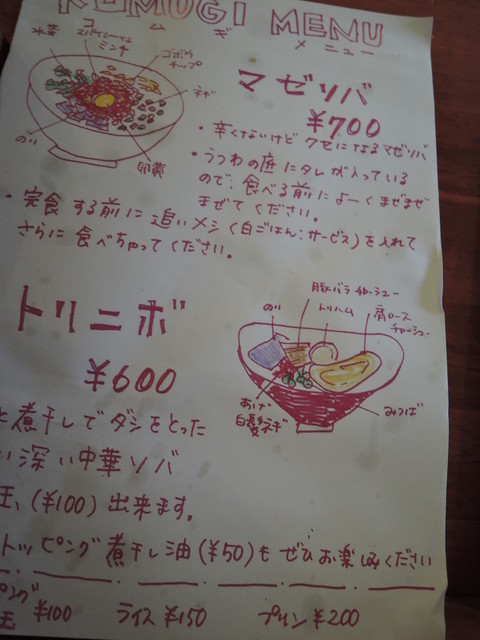 KOMUGI MENU
コムギ メニュー
水菜
スパイシーでミンチ
ゴボウチップ
ネギ
のり
卵黄
マゼソバ
¥700
・辛くないけど クセになるマゼソバ
・うつわの底にタレが入っている
ので、食べる前によーくまぜまぜ
まぜてください。
・完食する前に追いメシ(白ごはん:サービス)を入れて
さらに食べちゃってください。
トリニボ
¥600
豚バラチャーシュー
のり
トリハム
肩ロースチャーシュー
あげ
白髪ネギ
みつば
と煮干しでダシをとった
い深い中華ソバ
玉、(¥100) 出来ます。
トッピング煮干し油(¥50)もぜひお楽しみください
ピング
玉 ¥100 ライス ¥150 プリン ¥200